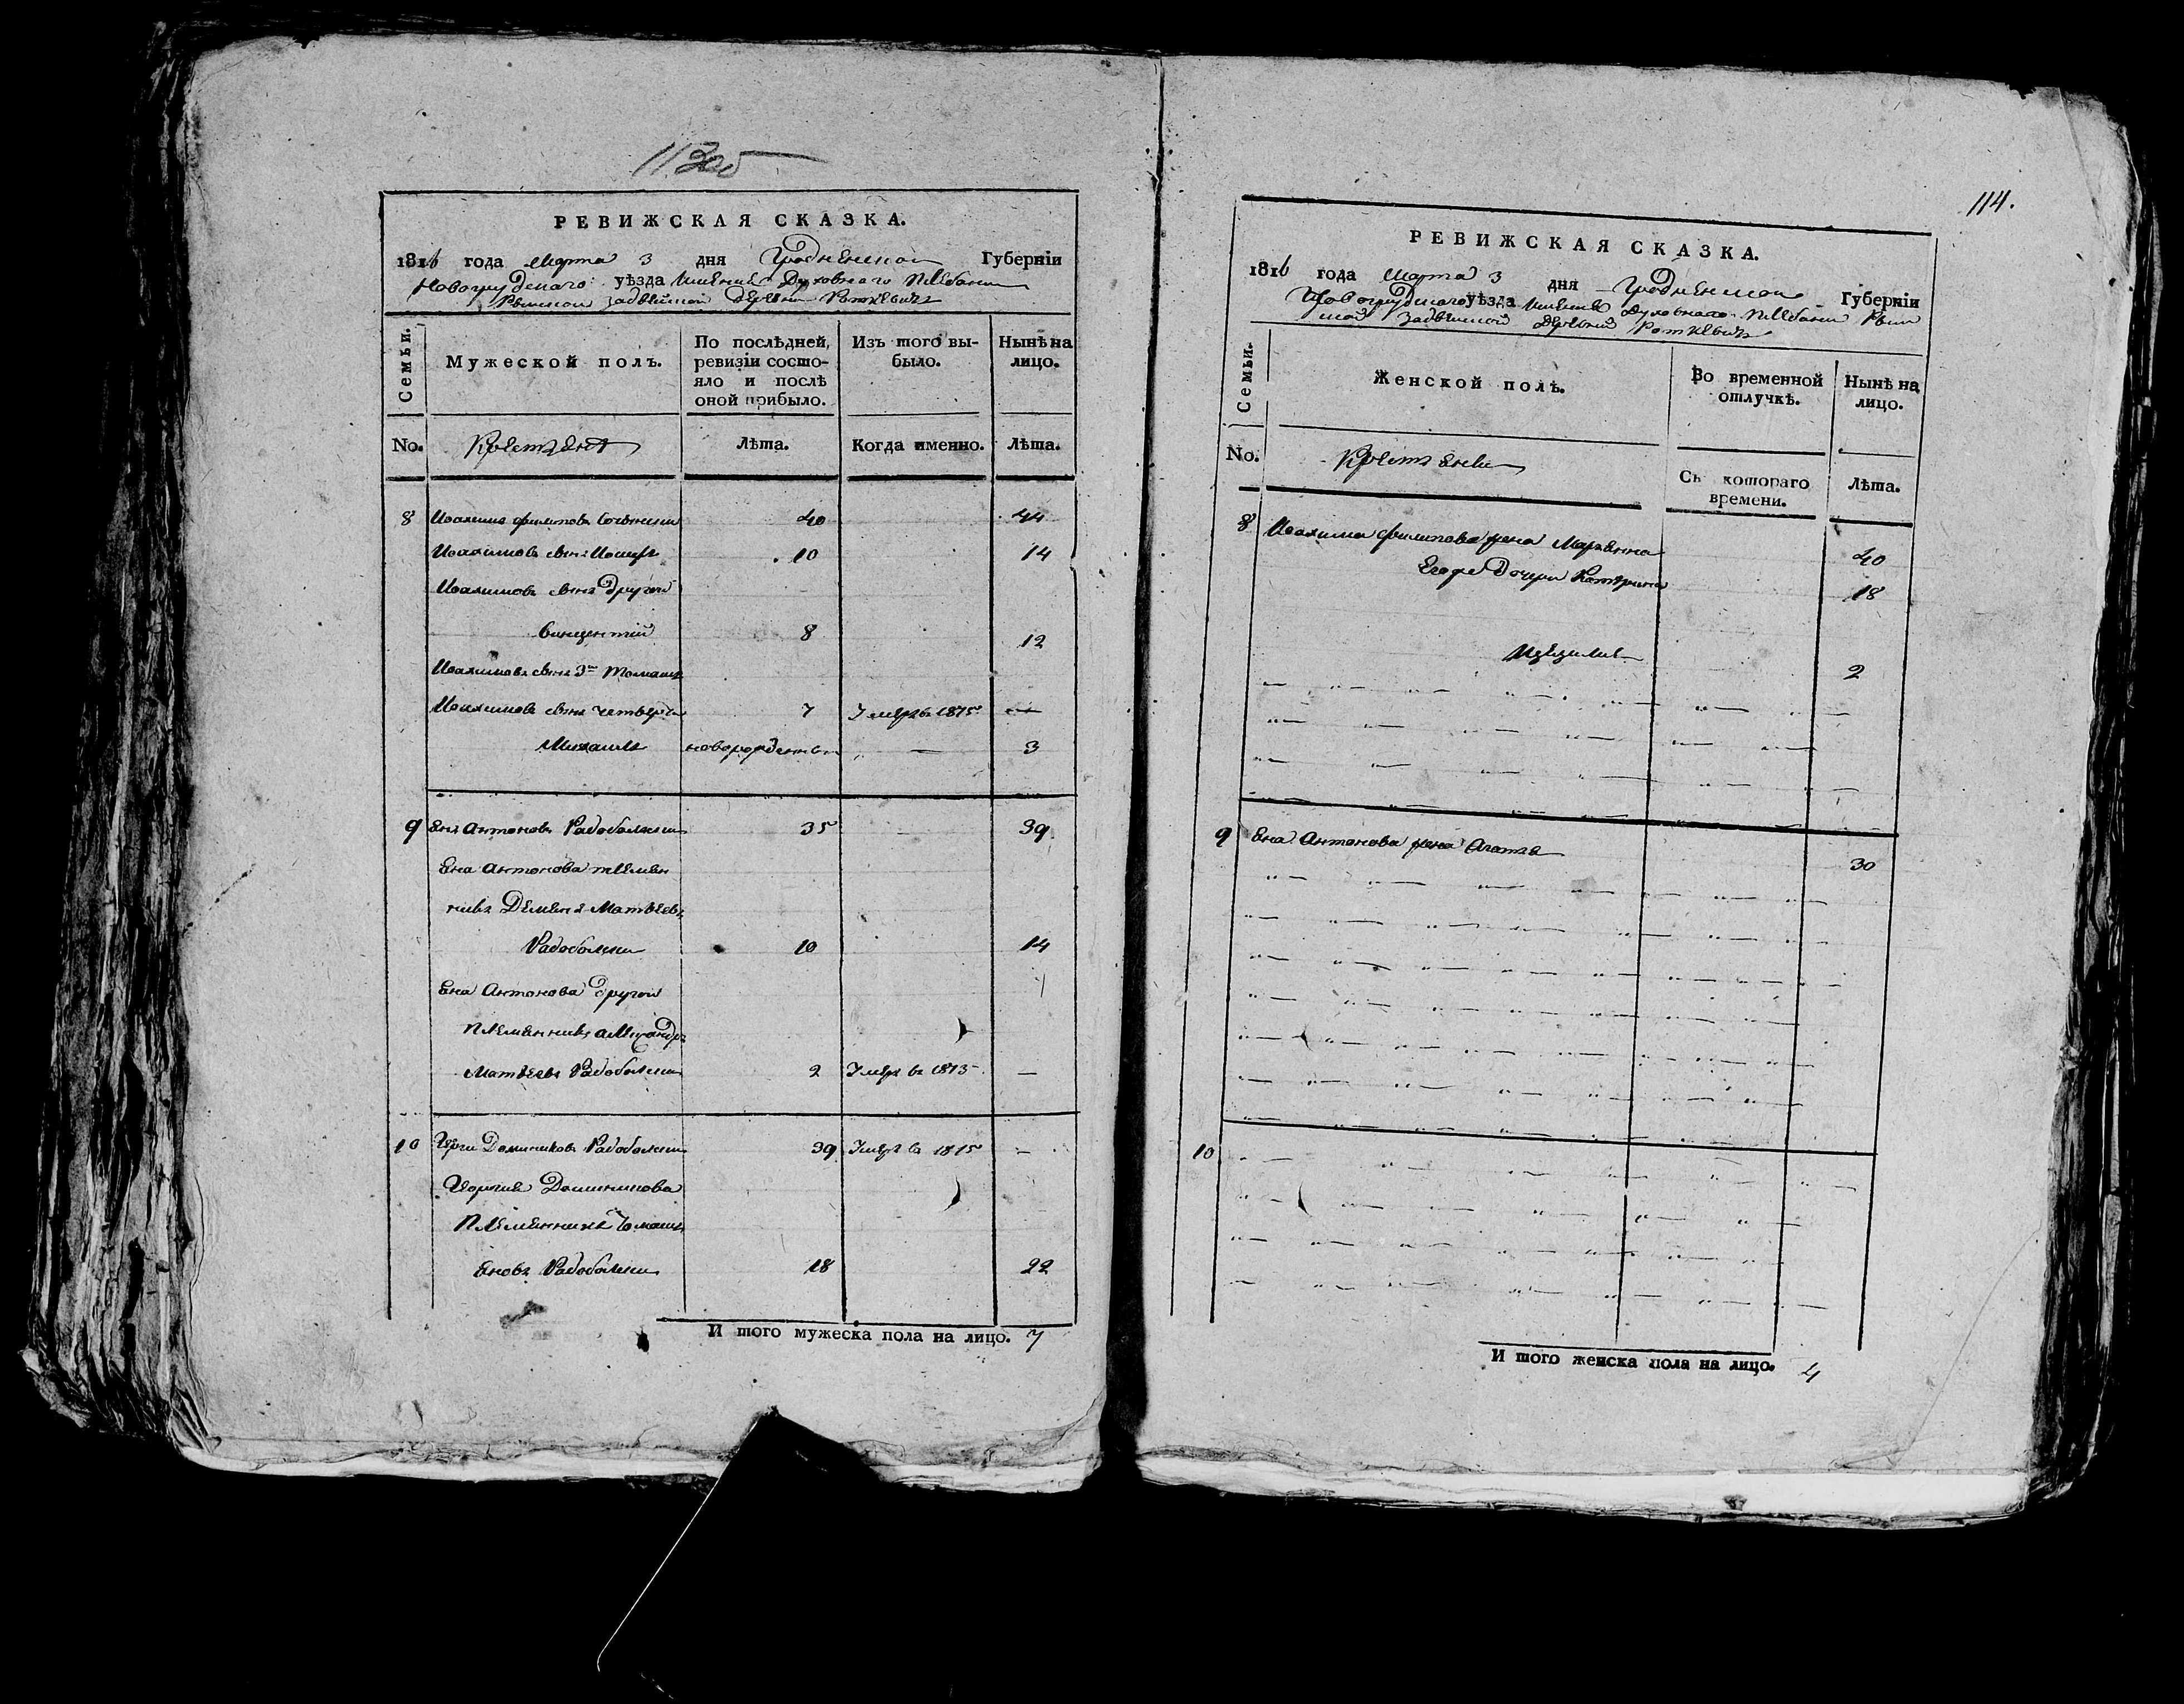 113об
РЕВИЖСКАЯ СКАЗКА.
1816 года Марта 3 дня Гродненской Губернїи
Новогрудскаго уѣзда Имения Духовнаго Плебани
деревни Роткевичъ
Семьи.
Мужеской полъ.
По послѣдней ревизїи состояло и послѣ оной прибыло.
Изъ того выбыло.
Нынѣ на лицо.
No.
Крестяня
Лѣта.
Когда именно.
Лѣта.
8 Иоахимъ Филиповъ 40 44
Иоахимовъ сынъ Иосифъ 10 14
Иоахимовъ сынъ Другой
Винцентий 8 12
Иоахимовъ сынъ 3й Томашъ
Иоахимовъ сынъ четверты 7 Умеръ въ 1815 —
Михаилъ новорожденны — 3
9 Янъ Антоновъ Радоболски 35 39
Яна Антонова племян
никъ Демянъ Матвеевъ
Радоболски 10 14
Яна Антонова другой
племянникъ Александръ
Матвеевъ Радоболски 2 Умеръ въ 1813 —
10 Доминиковъ Радоболски 39 Умеръ въ 1815 —
Доминикова
племянникъ Томашъ
Яновъ Радоболски 18 22
И того мужеска пола на лицо. 7
114.
РЕВИЖСКАЯ СКАЗКА.
1816 года Марта 3 дня Гродненской Губернїи
Новогрудскаго уѣзда Имения Духовнаго Плебани
деревни Роткевичъ
Семьи.
Женской полъ.
Во временной отлучкѣ.
Нынѣ на лицо.
No.
Крестянки
Съ котораго времени.
Лѣта.
8 Иоахима Филипова жена Марянна 40
Егоже Дочери Катерина 18
2
9 Яна Антонова жена Агата 30
10
И того женска пола на лицо. 4